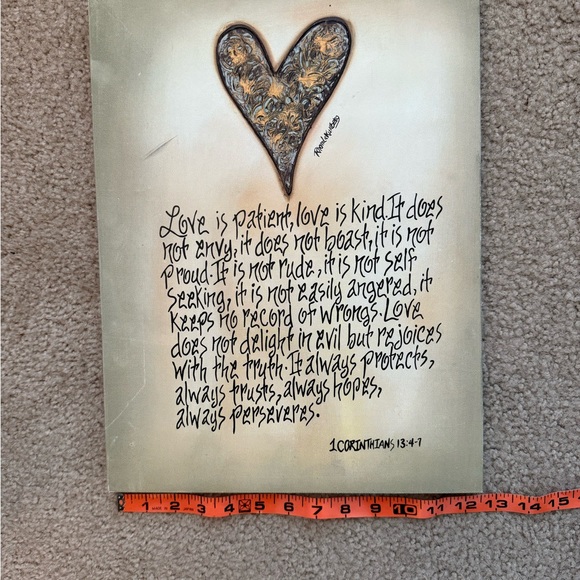 Love is patient, love is kind. It does
not envy, it does not boast, it is not
proud. It is not rude, it is not self
seeking, it is not easily angered, it
keeps no record of wrongs. Love
does not delight in evil but rejoices
with the truth. It always protects,
always trusts, always hopes,
always perseveres.
1 CORINTHIANS 13:4-7
1 2 3 4 5 6 7 8 9 10 11 12 13 14 15